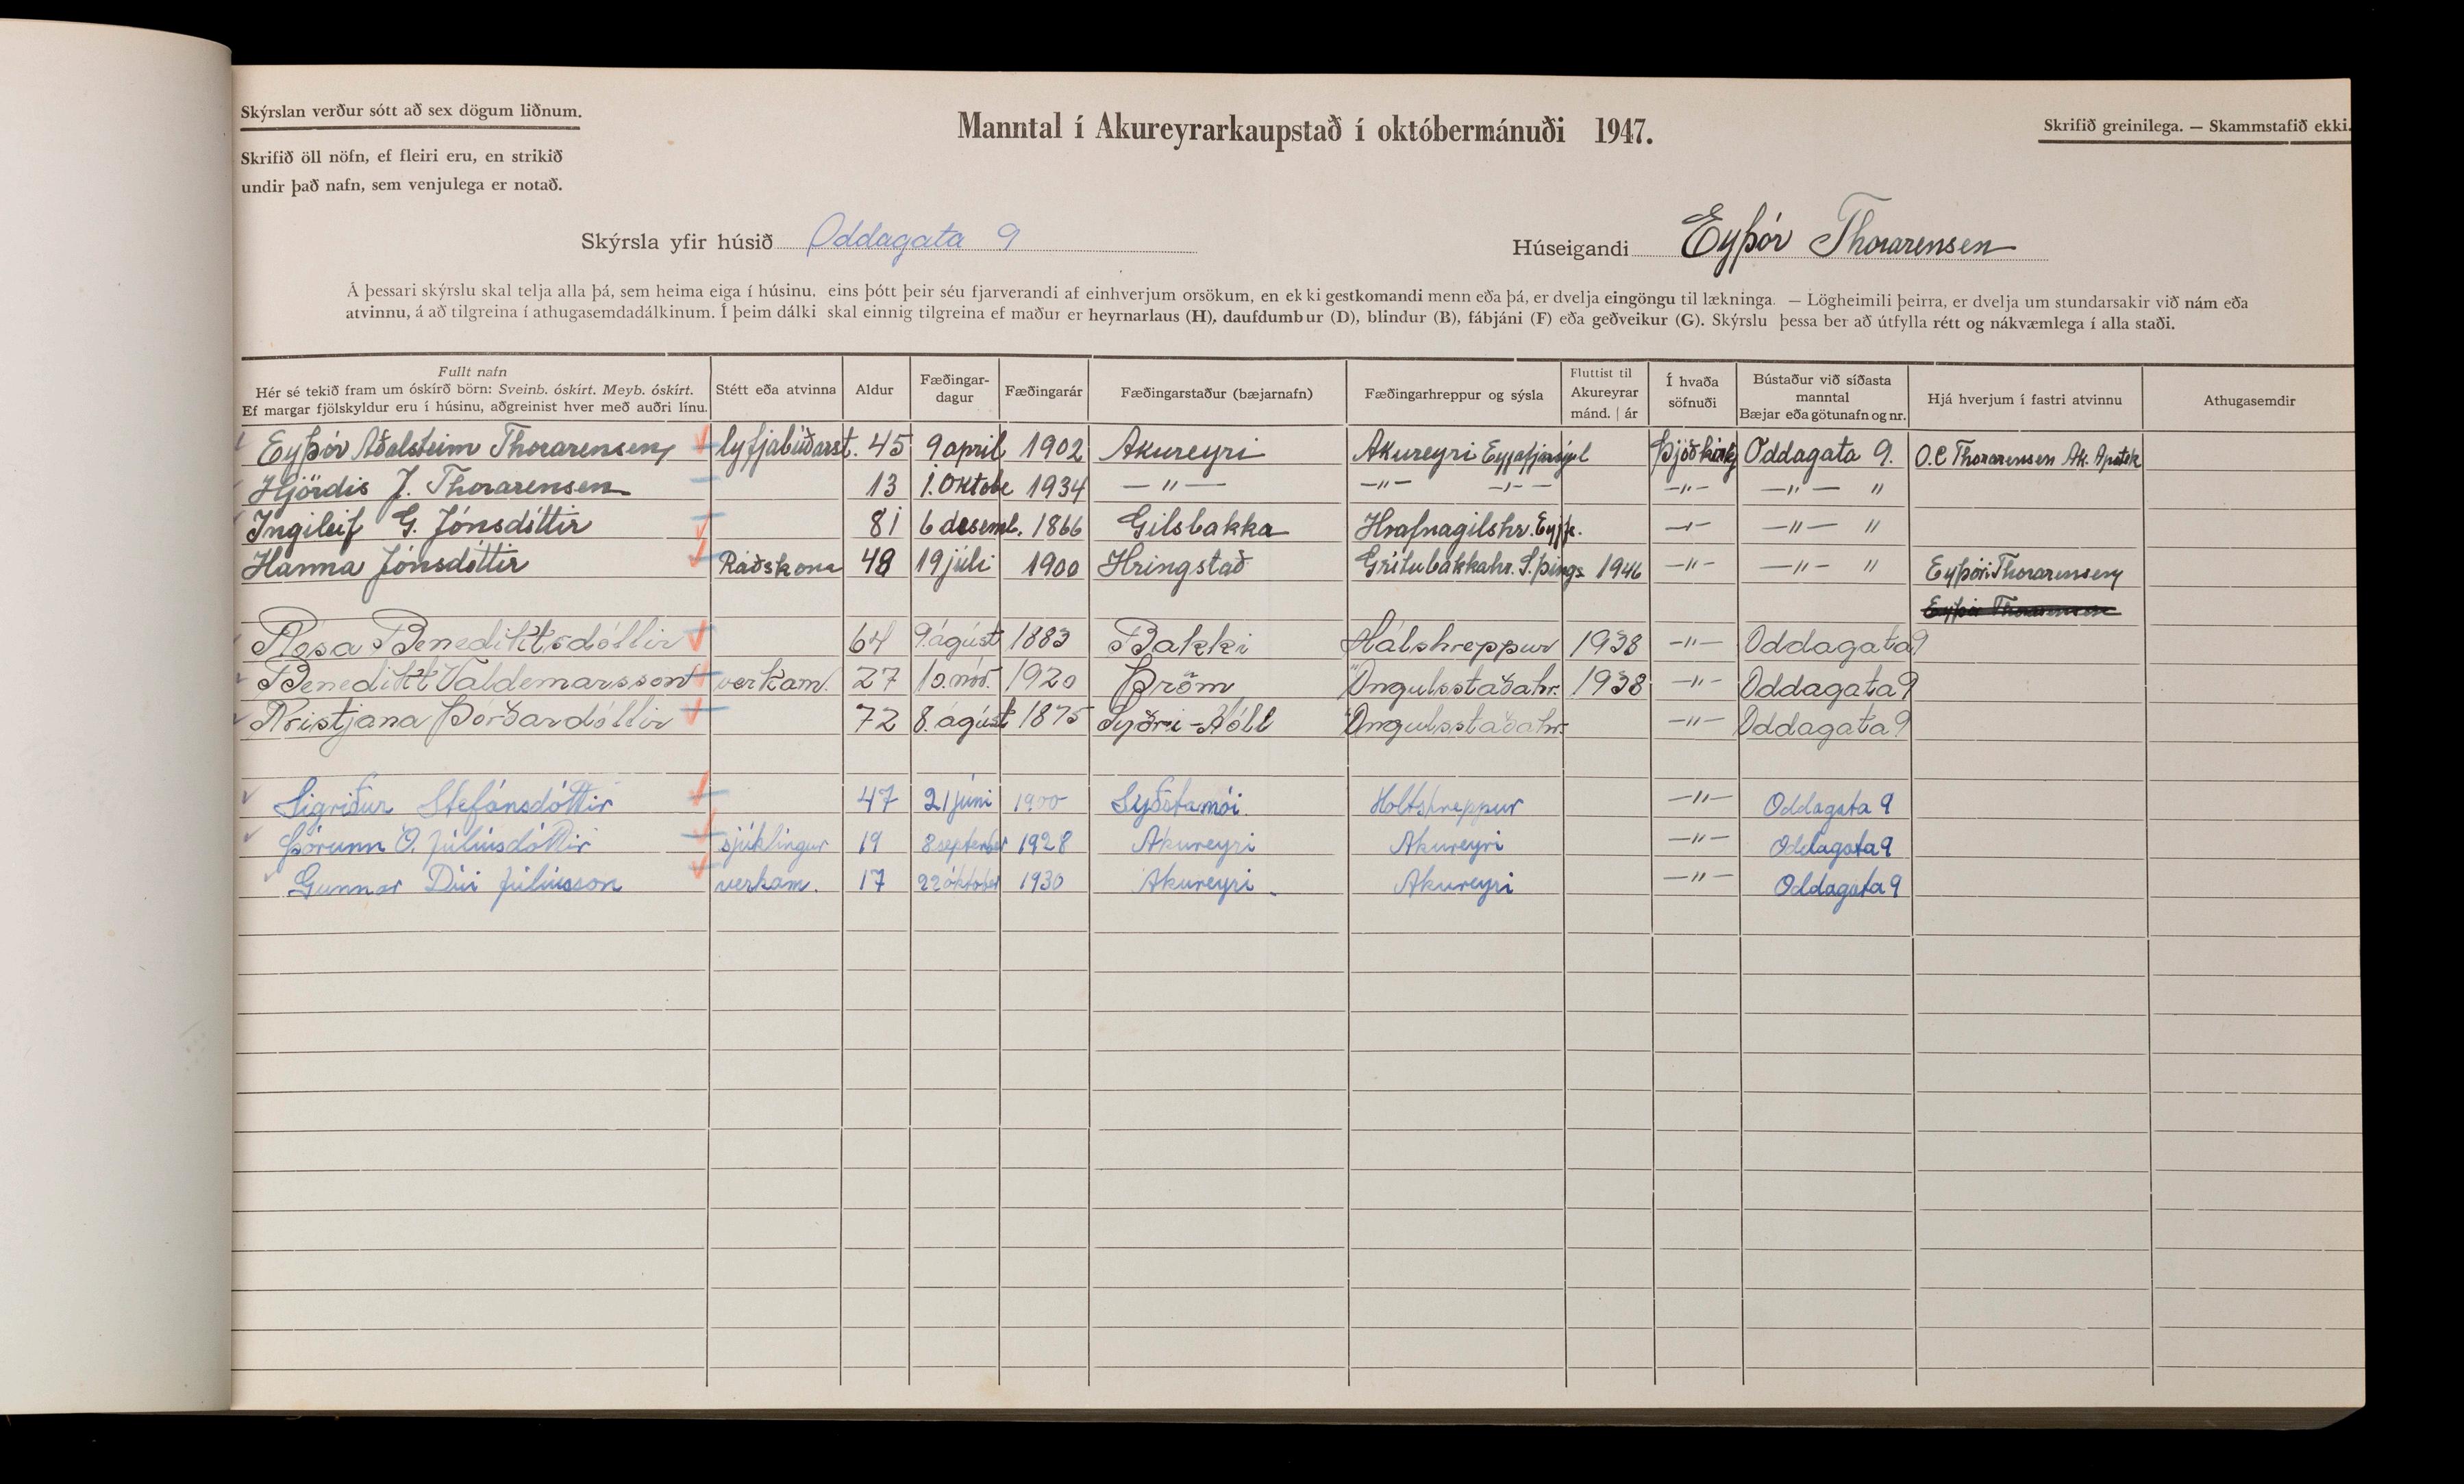 Skýrslan verður sótt að sex dögum liðnum.
Manntal í Akureyrarkaupstað í októbermánuði 1947.
Skrifið greinilega. — Skammstafið ekki.
Skrifið öll nöfn, ef fleiri eru, en strikið
undir það nafn, sem venjulega er notað.
Skýrsla yfir húsið Oddagata 9
Húseigandi Eyþór Thorarensen
Á þessari skýrslu skal telja alla þá, sem heima eiga í húsinu, eins þótt þeir séu fjarverandi af einhverjum orsökum, en ekki gestkomandi menn eða þá, er dvelja eingöngu til lækninga. — Lögheimili þeirra, er dvelja um stundarsakir við nám eða
atvinnu, á að tilgreina í athugasemdadálkinum. Í þeim dálki skal einnig tilgreina ef maður er heyrnarlaus (H), daufdumbur (D), blindur (B), fábjáni (F) eða geðveikur (G). Skýrslu þessa ber að útfylla rétt og nákvæmlega í alla staði.
Fullt nafn
Hér sé tekið fram um óskírð börn: Sveinb. óskírt. Meyb. óskírt.
Ef margar fjölskyldur eru í húsinu, aðgreinist hver með auðri línu.
Stétt eða atvinna
Aldur
Fæðingar-
dagur
Fæðingarár
Fæðingarstaður (bæjarnafn)
Fæðingarhreppur og sýsla
Fluttist til
Akureyrar
mánd. | ár
Í hvaða
söfnuði
Bústaður við síðasta
manntal
Bæjar eða götunafn og nr.
Hjá hverjum í fastri atvinnu
Athugasemdir
Eyþór Aðalsteinn Thorarensen lyfjabúðarst. 45 9 april 1902 Akureyri Akureyri Eyjafjarsýsl Þjóðkirkj Oddagata 9. O.C Thorarensen Ak. Apotek
Hjördis J. Thorarensen 13 1. Oktobe 1934 — " — — " — — " — — " — — " — "
Ingileif G. Jónsdóttir 81 6 desemb. 1866 Gilsbakka Hrafnagilshr. Eyjf. — " — — " — "
Hanna Jónsdóttir Ráðskona 48 19 júli 1900 Hringstað Grítubakkahr. S.þings 1946 — " — — " — " Eyþór Thorarensen
Eyþór Thorarensen
Rósa Benediktsdóttir 64 9. ágúst 1883 Bakki Hálshreppur 1938 — " — Oddagata 9
Benedikt Valdemarsson verkam. 27 10. nóv. 1920 Þröm Öngulsstaðahr. 1938 — " — Oddagata 9
Kristjana Þórðardóttir 72 8. ágúst 1875 Syðri-Hóll Öngulsstaðahr. — " — Oddagata 9
Sigriður Stefánsdóttir 47 21 júni 1900 Syðstamói. Holtshreppur — " — Oddagata 9
Þórunn Ó. Júlíusdóttir sjúklingur 19 8 september 1928 Akureyri Akureyri — " — Oddagata 9
Gunnar Dúi Júlíusson verkam. 17 22 óktober 1930 Akureyri Akureyri — " — Oddagata 9